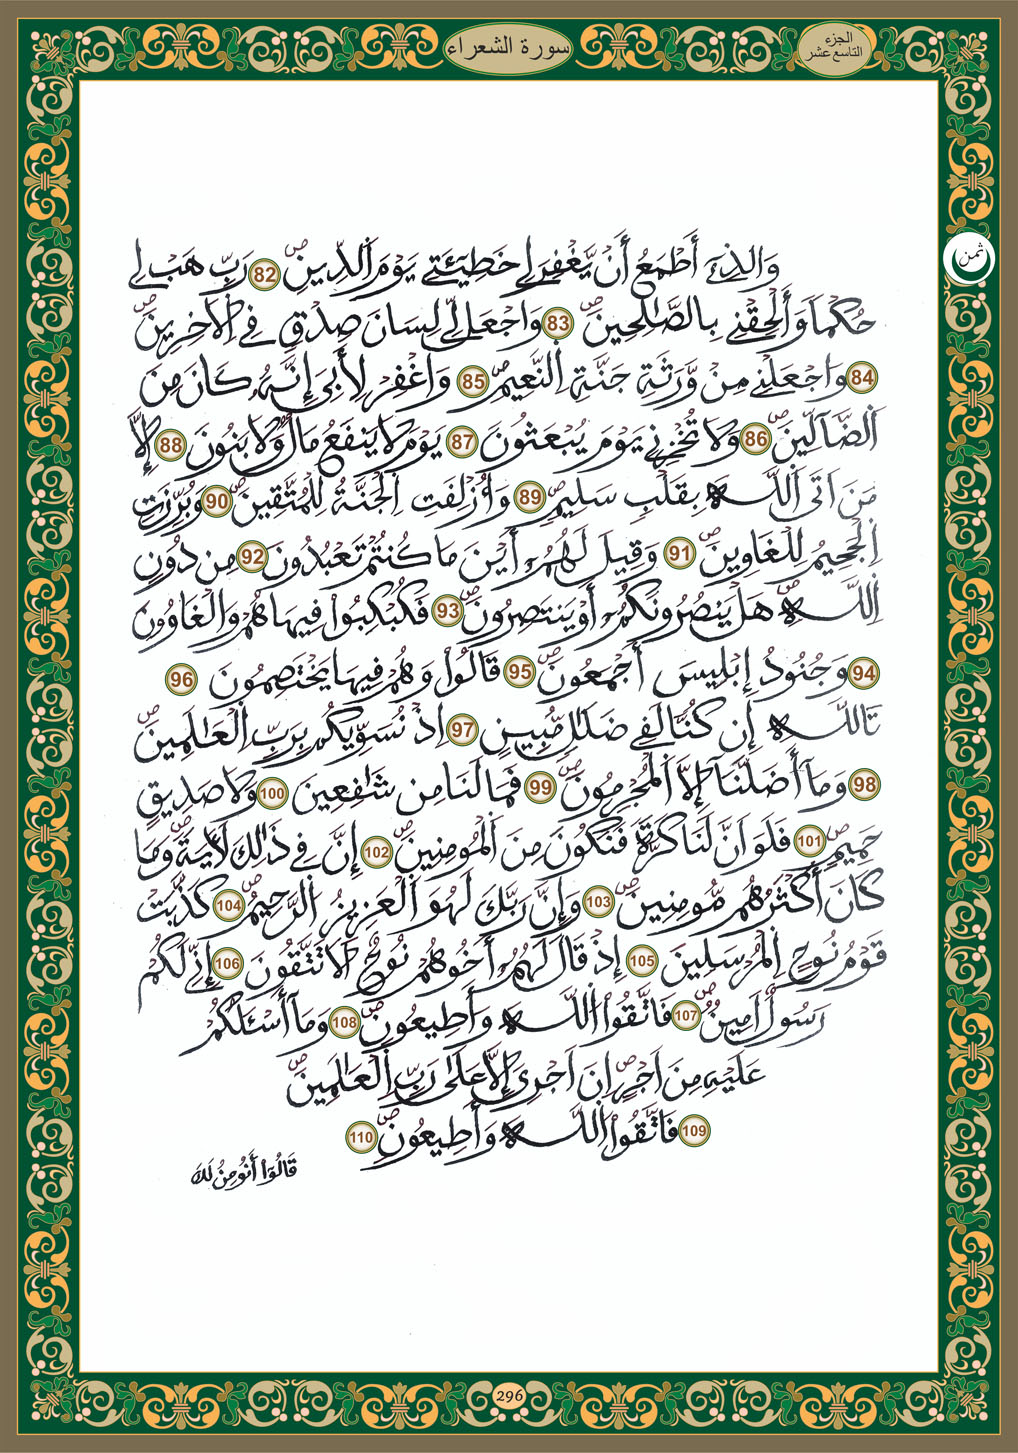 سورة الشعراء
الجزء
التاسع عشر
ثمن
وَالذِےٓ أَطْمَعُ أَنْ يَّغْفِرَ لِے خَطِيٓـَٔتِے يَوْمَ اَلدِّينِ 82 رَبِّ هَبْ لِے
حُكْماً وَأَلْحِقْنِے بِالصَّٰلِحِينَ 83 وَاجْعَل لِّے لِسَانَ صِدْقٍ فِے اِلَاخِرِينَ
84 وَاجْعَلْنِے مِنْ وَّرَثَةِ جَنَّةِ اِلنَّعِيمِ 85 وَاغْفِرْ لِأَبِيَ إِنَّهُۥ كَانَ مِنَ
اَلضَّآلِّينَ 86 وَلَا تُخْزِنِے يَوْمَ يُبْعَثُونَ 87 يَوْمَ لَا يَنفَعُ مَالٌ وَلَا بَنُونَ 88 إِلَّا
مَنَ اَتَى اَللَّهَ بِقَلْبٍ سَلِيمٍ 89 وَأُزْلِفَتِ اِلْجَنَّةُ لِلْمُتَّقِينَ 90 وَبُرِّزَتِ
اِلْجَحِيمُ لِلْغَاوِينَ 91 وَقِيلَ لَهُمُۥٓ أَيْنَ مَا كُنتُمْ تَعْبُدُونَ 92 مِن دُونِ
اِللَّهِ هَلْ يَنصُرُونَكُمُۥٓ أَوْ يَنتَصِرُونَ 93 فَكُبْكِبُواْ فِيهَا هُمْ وَالْغَاوُۥنَ
94 وَجُنُودُ إِبْلِيسَ أَجْمَعُونَ 95 قَالُواْ وَهُمْ فِيهَا يَخْتَصِمُونَ 96
تَاللَّهِ إِن كُنَّا لَفِے ضَلَٰلٍ مُّبِينٍ 97 إِذْ نُسَوِّيكُم بِرَبِّ اِلْعَٰلَمِينَ
98 وَمَآ أَضَلَّنَآ إِلَّا اَلْمُجْرِمُونَ 99 فَمَا لَنَا مِن شَٰفِعِينَ 100 وَلَا صَدِيقٍ
حَمِيمٍ 101 فَلَوَ اَنَّ لَنَا كَرَّةً فَنَكُونَ مِنَ اَلْمُومِنِينَ 102 إِنَّ فِے ذَٰلِكَ لَأٓيَةً وَمَا
كَانَ أَكْثَرُهُم مُّومِنِينَ 103 وَإِنَّ رَبَّكَ لَهُوَ اَلْعَزِيزُ اُلرَّحِيمُ 104 كَذَّبَتْ
قَوْمُ نُوحٍ اِلْمُرْسَلِينَ 105 إِذْ قَالَ لَهُمُۥٓ أَخُوهُمْ نُوحٌ اَلَا تَتَّقُونَ 106 إِنِّے لَكُمْ
رَسُولٌ اَمِينٌ 107 فَاتَّقُواْ اُللَّهَ وَأَطِيعُونِ 108 وَمَآ أَسْـَٔلُكُمْ
عَلَيْهِ مِنَ اَجْرٍ اِنَ اَجْرِيَ إِلَّا عَلَىٰ رَبِّ اِلْعَٰلَمِينَ
109 فَاتَّقُواْ اُللَّهَ وَأَطِيعُونِ 110
قَالُوٓاْ أَنُومِنُ لَكَ
296